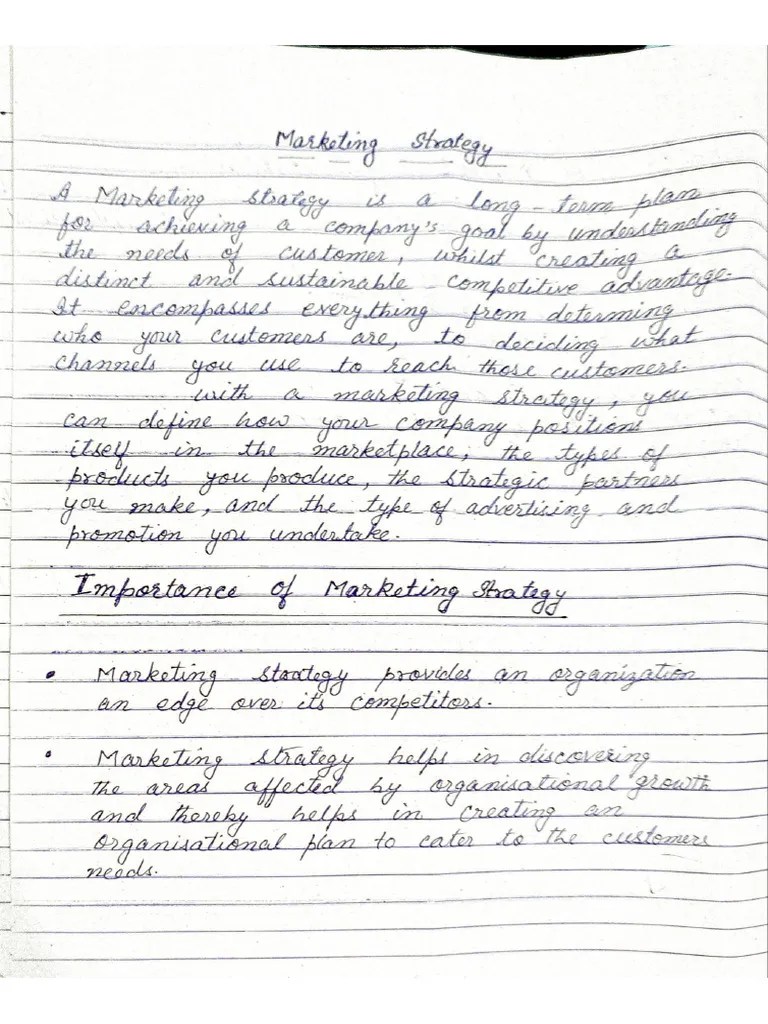 Marketing Strategy
A Marketing strategy is a long-term plan
for achieving a company's goal by understanding
the needs of customer, whilst creating a
distinct and sustainable competitive advantage.
It encompasses everything from determing
who your customers are, to deciding what
channels you use to reach those customers.
with a marketing strategy, you
can define how your company positions
itself in the marketplace, the types of
products you produce, the strategic partners
you make, and the type of advertising and
promotion you undertake.
Importance of Marketing Strategy
• Marketing strategy provides an organization
an edge over its competitors.
• Marketing strategy helps in discovering
the areas affected by organisational growth
and thereby helps in creating an
organisational plan to cater to the customers
needs.